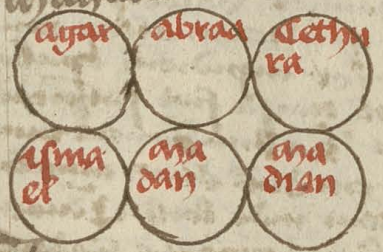 agar
abraa
Cethu
ra
isma
el
Ma
dan
Ma
dian